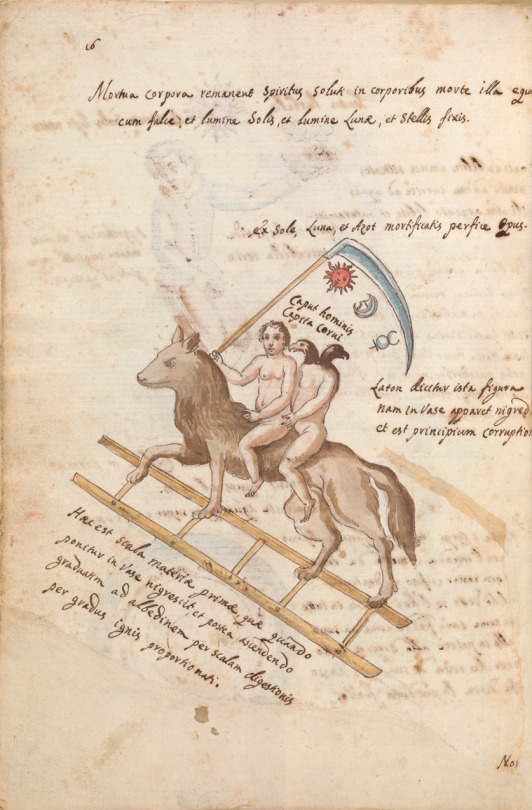 16
Mortua corpora remanent spiritus soluti in corporibus morte illa equi
cum falce, et lumine Solis, et lumine Lunæ, et Stellis fixis.
ex Sole, Luna, et Azot mortificatis perfice Opus.
Caput hominis
Capita Corui
Laton dicitur ista figura
nam in Vase apparet nigred
et est principium corruption
Hæc est scala materiæ primæ quæ quando
ponitur in Vase nigrescit, et postea ascendendo
gradatim ad albedinem per scalam digestionis
per gradus ignis proportionati.
Nos